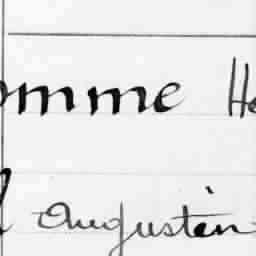 omme He
Augustin